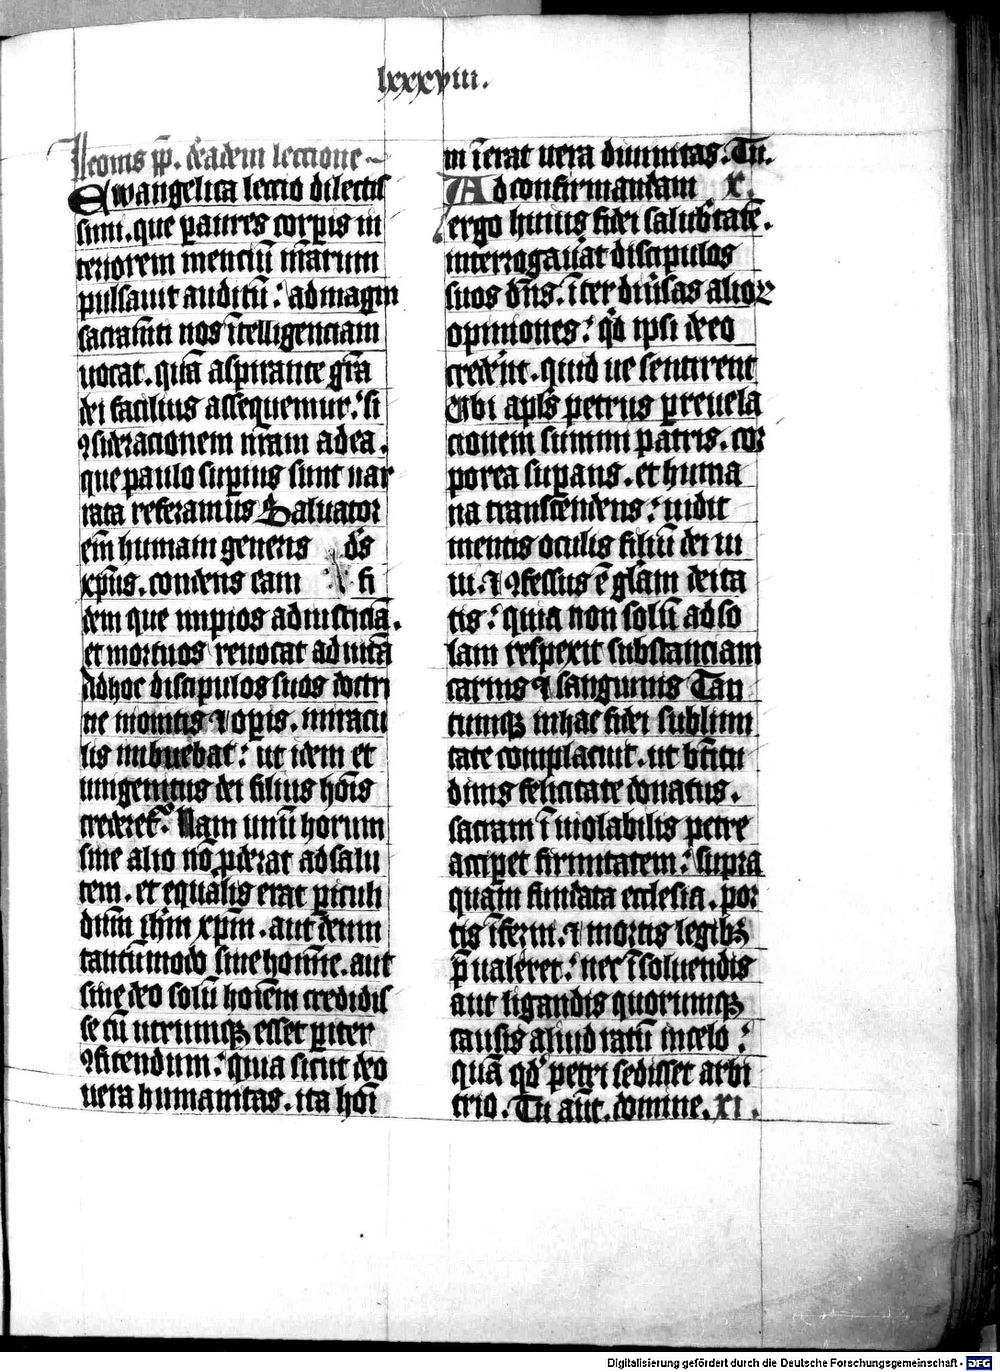 lxxxviii.
Leonis pp. de eadem leccione
Ewangelica leccio dilectis
simi. que paures corpis in
teriorem menciū nr̄arum
pulsauit auditū: ad magni
sacramīti nos ītelligenciam
uocat. quā aspirante grā
dei facilius assequemur. si
ꝯsideracionem nr̄am ad ea.
que paulo supius sunt nar
rata referamus Saluator
em̄ humani generis ds̄
xpūs. condens eam fi
dem que impios ad iusticiā.
et mortuos reuocat ad uitā
Ad hoc discipulos suos doctri
ne monitis ⁊ opis. miracu
lis imbuebat: ut idem et
unigenitus dei filius hoīs
crederet᷑. Nam unū horum
sine alio nō pderat ad salu
tem. et equalis erat piculi
dn̄m ihm̄ xpm̄. aut deum
tantūmodo sine homīe. aut
sine deo solū hoīem credidis
se cū utrumqꝫ esset piter
ꝯfitendum: quia sicut deo
uera humanitas. ita hoī
ni īerat uera diuinitas. Tu.
Ad confirmandam x.
ergo huius fidei salubītatē.
interrogauāt discipulos
suos dn̄s. īter diūsas alioꝝ
opiniones: qd̄ ipsi de eo
crederēt. quid ue sentirent
Ubi apls̄ petrus p reuela
cionem summi patris. cor
porea supans. et huma
na transcendens: uidit
mentis oculis filiū dei ui
ui. ⁊ ꝯfessus ē glām deita
tis: quia non solū ad so
lam respexit substanciam
carnis ⁊ sanguinis Tan
tumqꝫ in hac fidei sublimi
tate complacuit. ut btītu
dinis felicitate donatus.
sacram īuiolabilis petre
accipet firmitatem: supra
quam fundata ecclesia. por
tis īferni. ⁊ mortis legibꝫ
p̄ualeret: nec ī soluendis
aut ligandis quorumqꝫ
causis aliud ratū in celo:
quā qd̄ petri sedisset arbi
trio. Tu aūt. domine. xi.
Digitalisierung gefördert durch die Deutsche Forschungsgemeinschaft - DFG